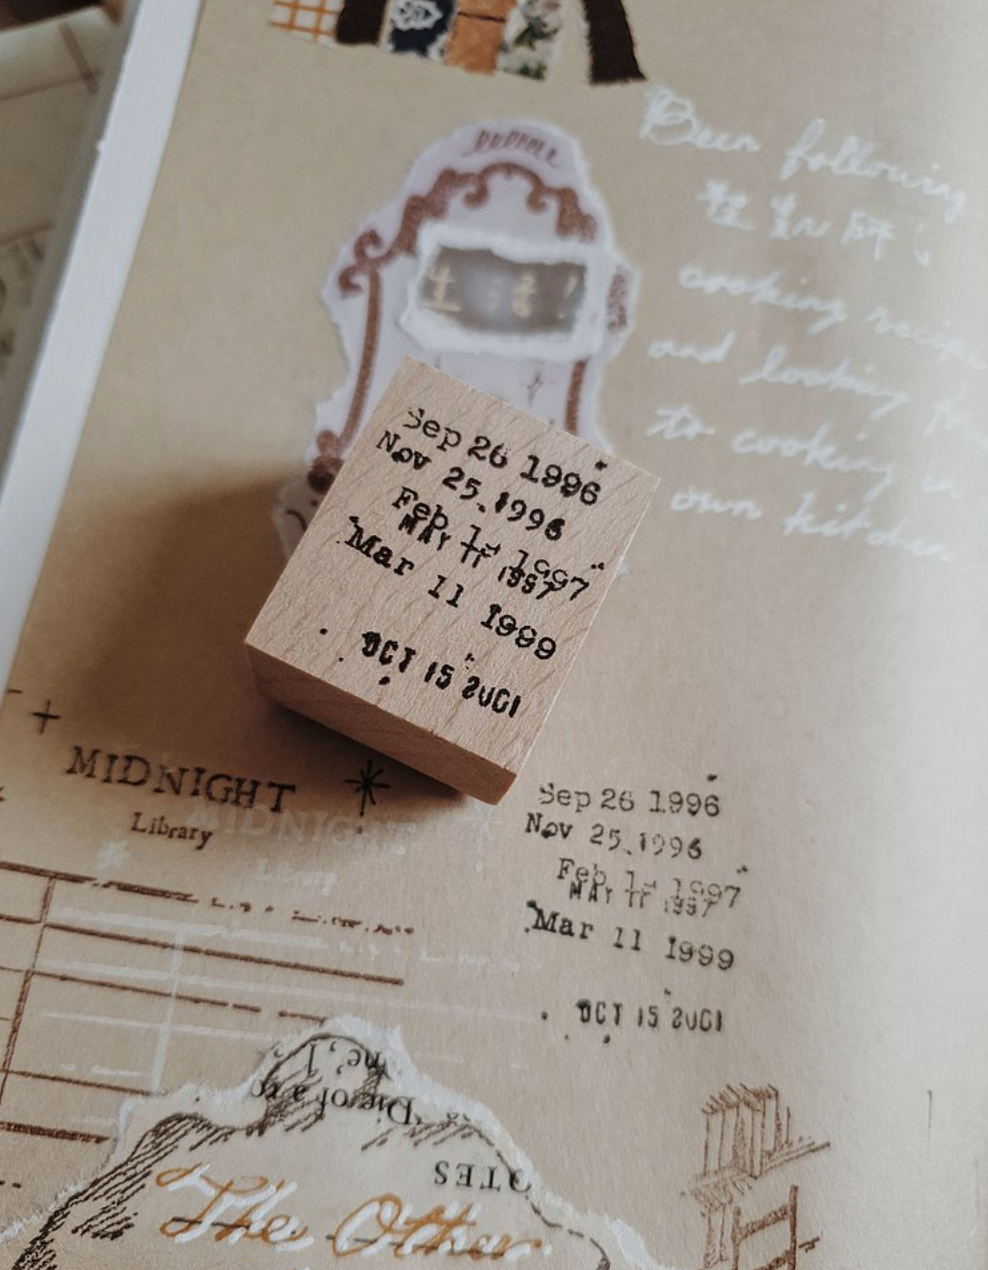 Been following
cooking recipe
and looking for
to cooking in
own kitchen
生活!
Sep 26 1996
Nov 25.1996
Feb 1 1997
MAY 11 1997
Mar 11 1999
OCT 15 2001
MIDNIGHT
Library
MIDNIGHT
Library
Sep 26 1996
Nov 25.1996
Feb 1 1997
MAY 11 1997
Mar 11 1999
OCT 15 2001
OTES
The Other